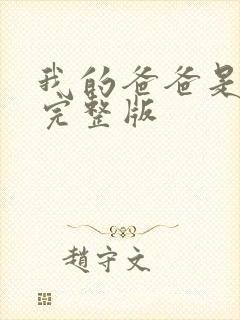 我的爸爸是
完整版
趙守文